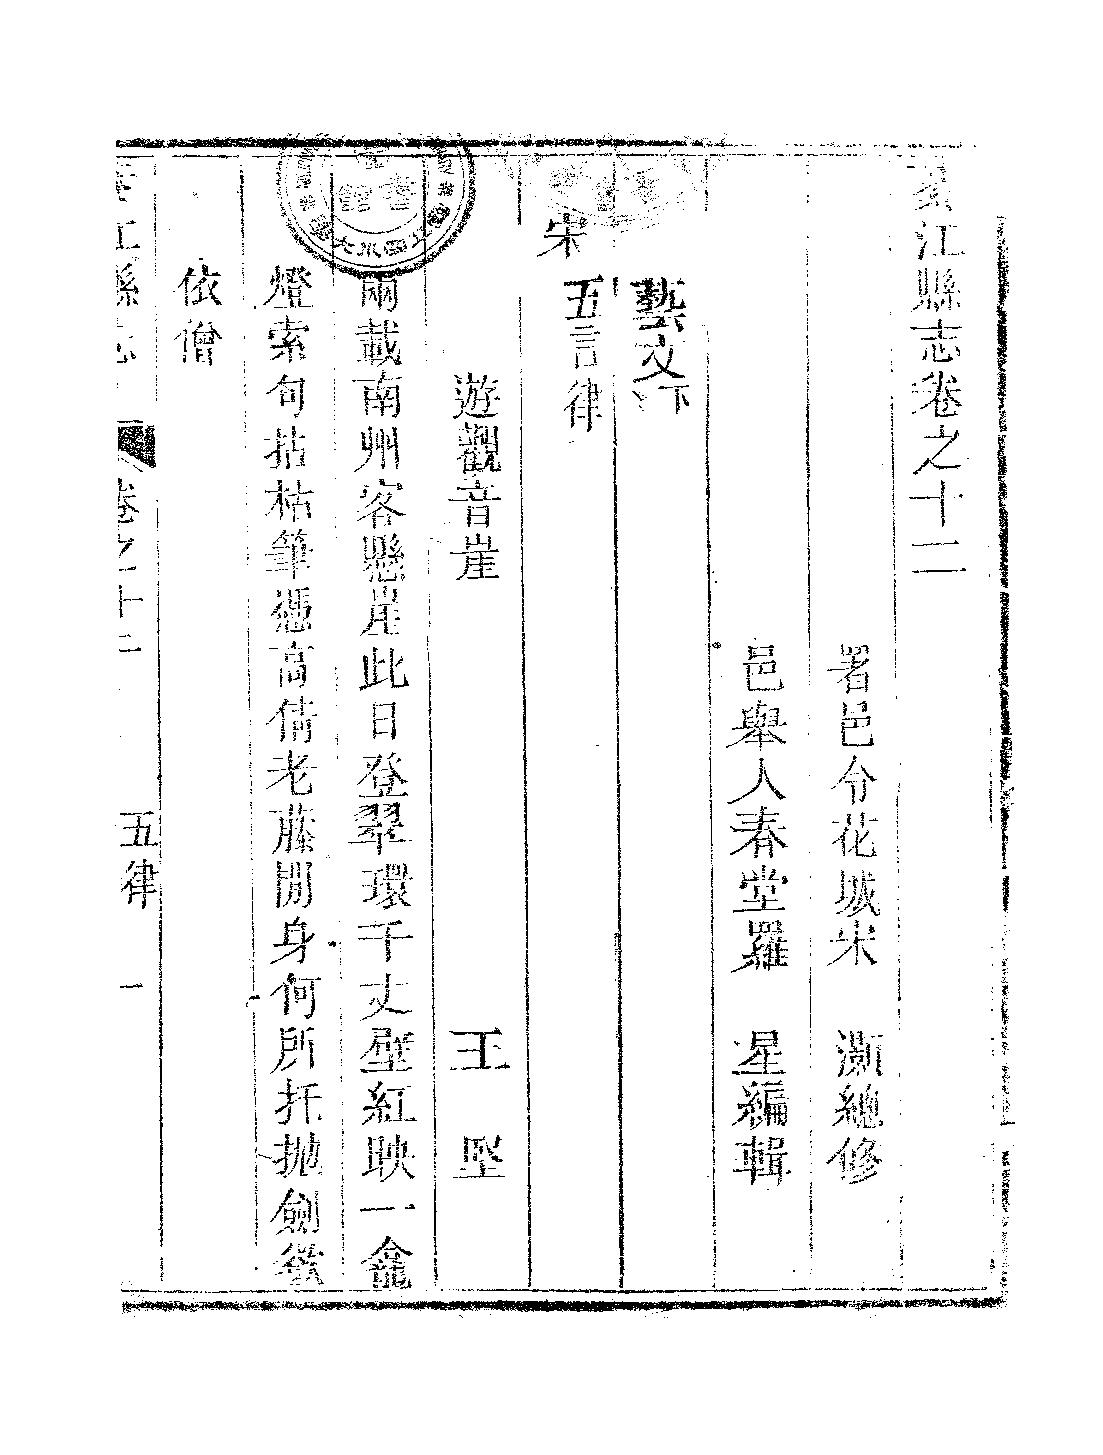 綦江縣志卷之十二
署邑令花城宋　灝總修
邑舉人春堂羅　星編輯
藝文下
五言律
宋
遊觀音崖　王　堅
兩載南州客懸崖此日登翠環千丈壁紅映一龕
燈索句拈枯筆憑高倩老藤閒身何所托拋劍欲
依僧
綦江縣志　卷之十二　五律　一